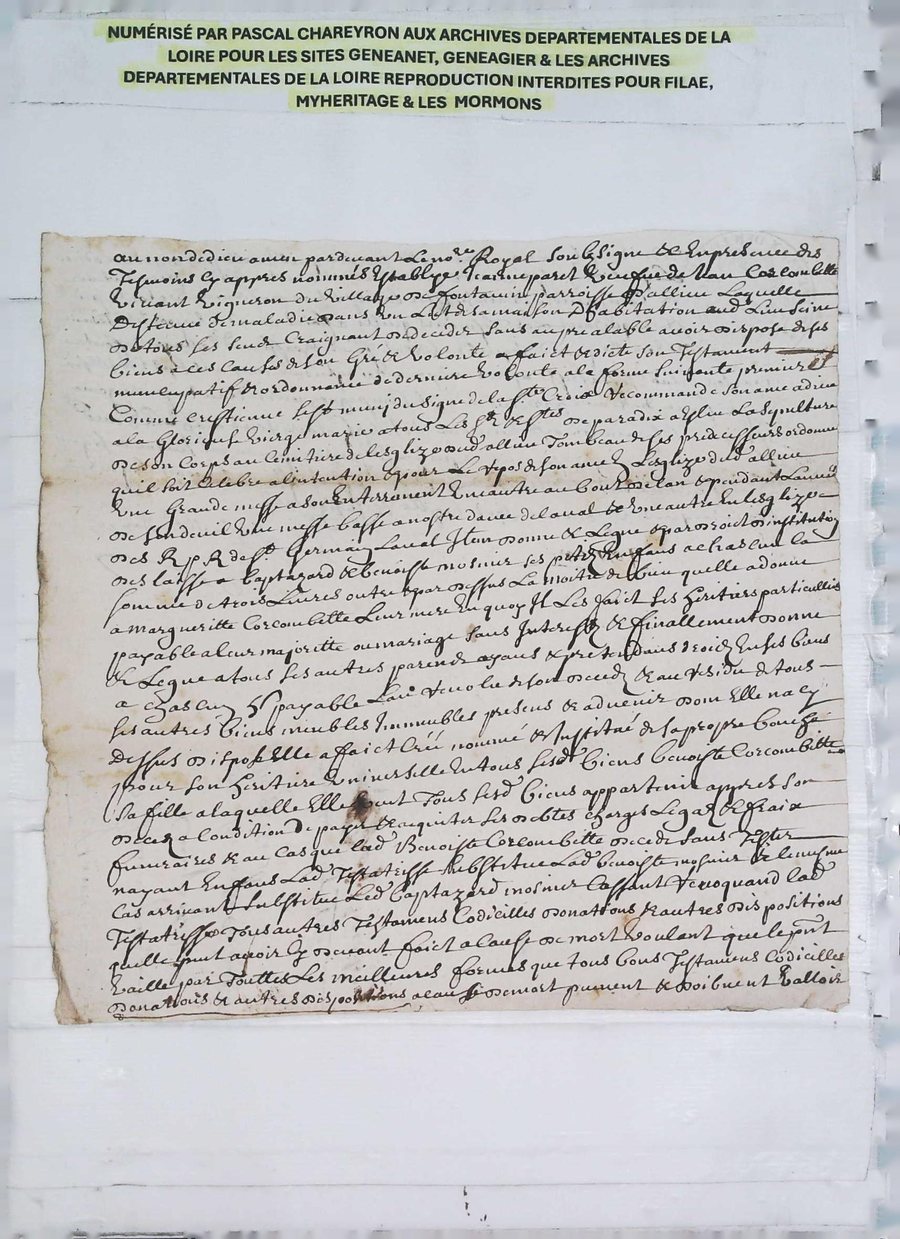 NUMÉRISÉ PAR PASCAL CHAREYRON AUX ARCHIVES DEPARTEMENTALES DE LA
LOIRE POUR LES SITES GENEANET, GENEAGIER & LES ARCHIVES
DEPARTEMENTALES DE LA LOIRE REPRODUCTION INTERDITES POUR FILAE,
MYHERITAGE & LES MORMONS
au nom de dieu amen pardevant le no.re Royal soubsigne & en presence des
Tesmoins cy appres nommés establye Jeanne paret veufve de Jean Corcombette
vivant vigneron du village de fontanin parroisse d'allieu Laquelle
destenue de maladie dans un lict de sa maison d'habitation aud Lieu seine
de tous ses sens Craignant de deceder sans au prealable avoir dispose de ses
biens a ces causes de son Gré & volonte a faict & dicte son Testament
nuncupatif & ordonnance de derniere volonte a la forme suivante premier.t
Comme crestienne sest muny du signe de la s.te Croix Recommande son ame a dieu
a la Glorieuse vierge marie a tous Les s.ts & s.tes de paradix a Esleu La sepulture
de son Corps au Cemitiere de lesglize dud allieu Tombeau de ses predecesseurs ordonne
quil soit celebre a lintention & pour Le repos de son ame en Lesglize dud allieu
une Grande messe a son Enterrement une autre au bout de lan & pendant Lannee
de son deuil une messe basse a nostre dame de laval & une autre en lesglize
des R p R de s.t Germain Laval Item donne & Legue & par droict d'institution
des laisse a baptazard & benoiste mosnier ses petits Enfans a chascun la
somme de trois Livres outre & par dessus La moitié de bien quelle a donne
a margueritte Corcombette Leur mere en quoy Il Les faict ses heritiers particulliers
payable a leur majoritte ou mariage sans Interestz & finallement donne
& Legue a tous ses autres parends ayans & pretendans droicts en ses biens
a chascun 5s payable Lan revolu de son deceds & au residu de tous
ses autres biens meubles Immeubles presens & advenir dont Elle na cy
dessus disposé Elle a faict Créé nommé & Institué de sa propre bouche
pour son heritiere universelle en tous sesd biens benoiste Corcombette
sa fille a laquelle Elle veut Tous sesd biens appartenir appres son
deces a Condition de payer & acquiter ses debtes charges Legaz & fraix
funeraires & au cas que lad Benoiste Corcombette decede sans Tester
nayant Enfans Lad Testatrisse substitue Lad benoiste mosnier & le mesme
Cas arrivant substitue Led baptazard mosnier Cassant revoquand lad
Testatrisse Tous autres Testamens Codicilles donations & autres dispositions
quelle peut avoir cy devant faict a cause de mort voulant que le p.nt
vaille par Touttes Les meilleures formes que tous bons Testamens Codicilles
donations & autres dispositions a cause de mort peuvent & doibvent valloir